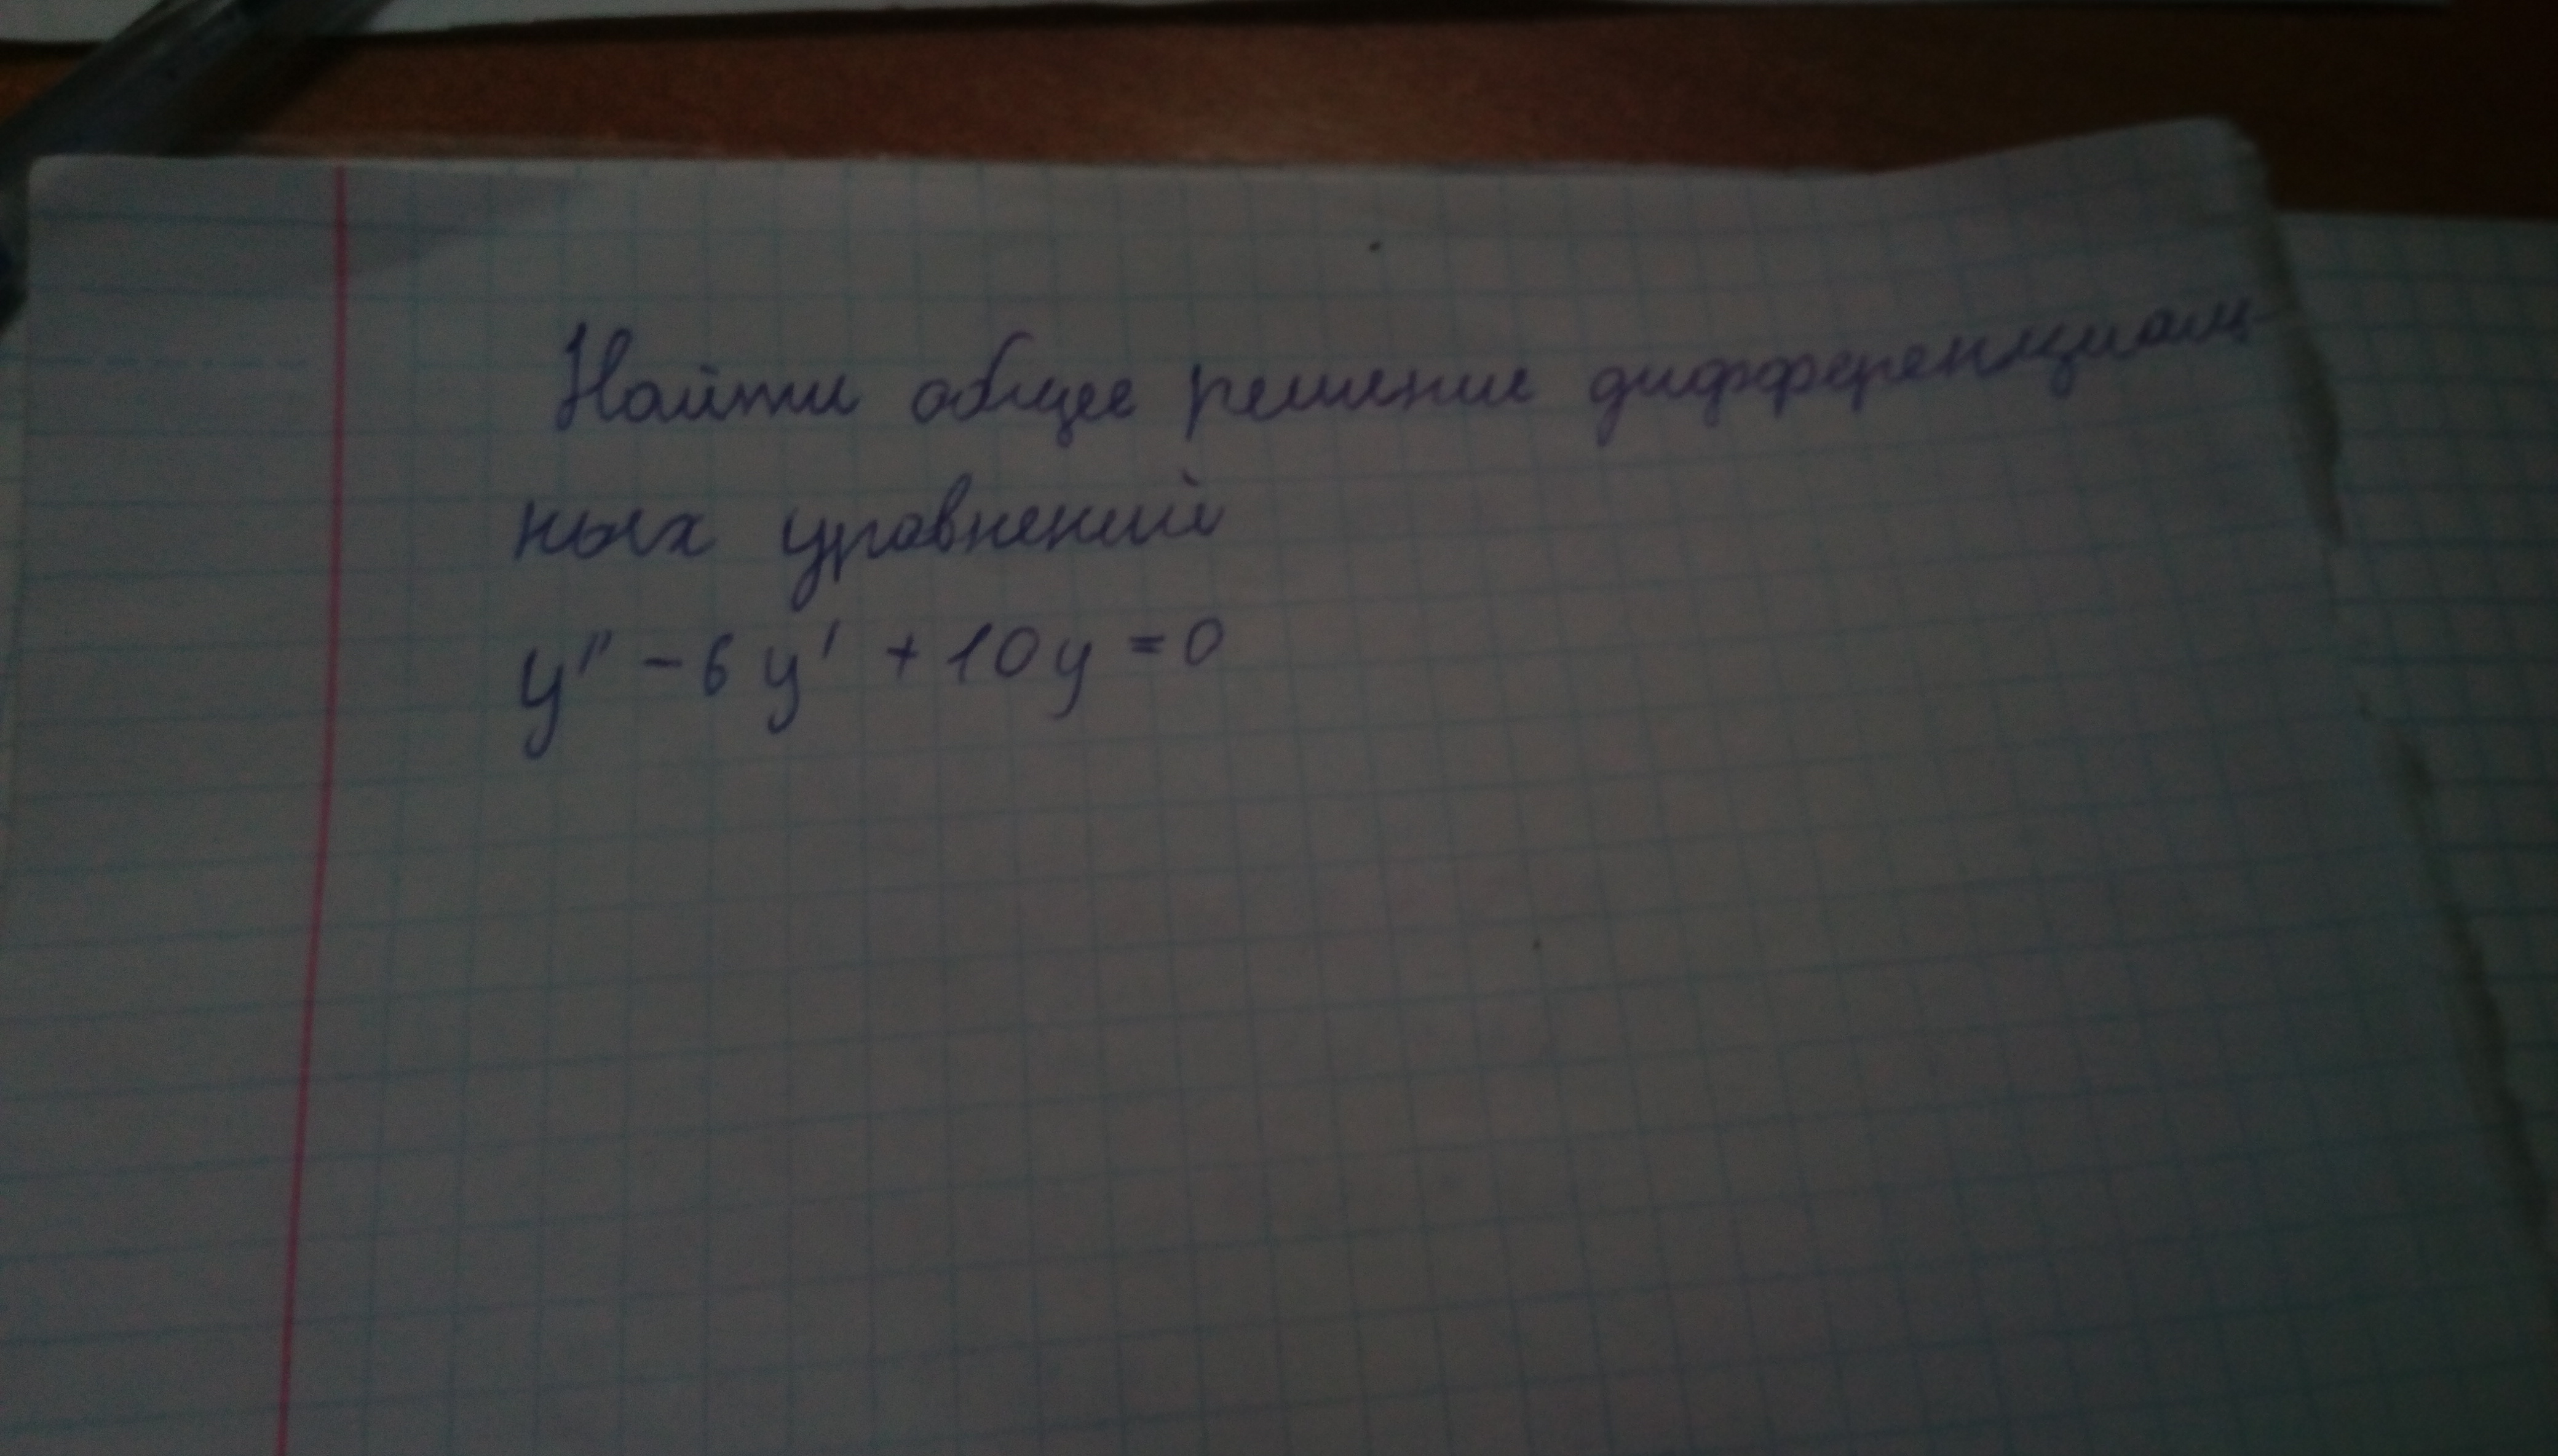 Найти общее решение дифференциаль-
ных уравнений
y'' - 6y' + 10y = 0